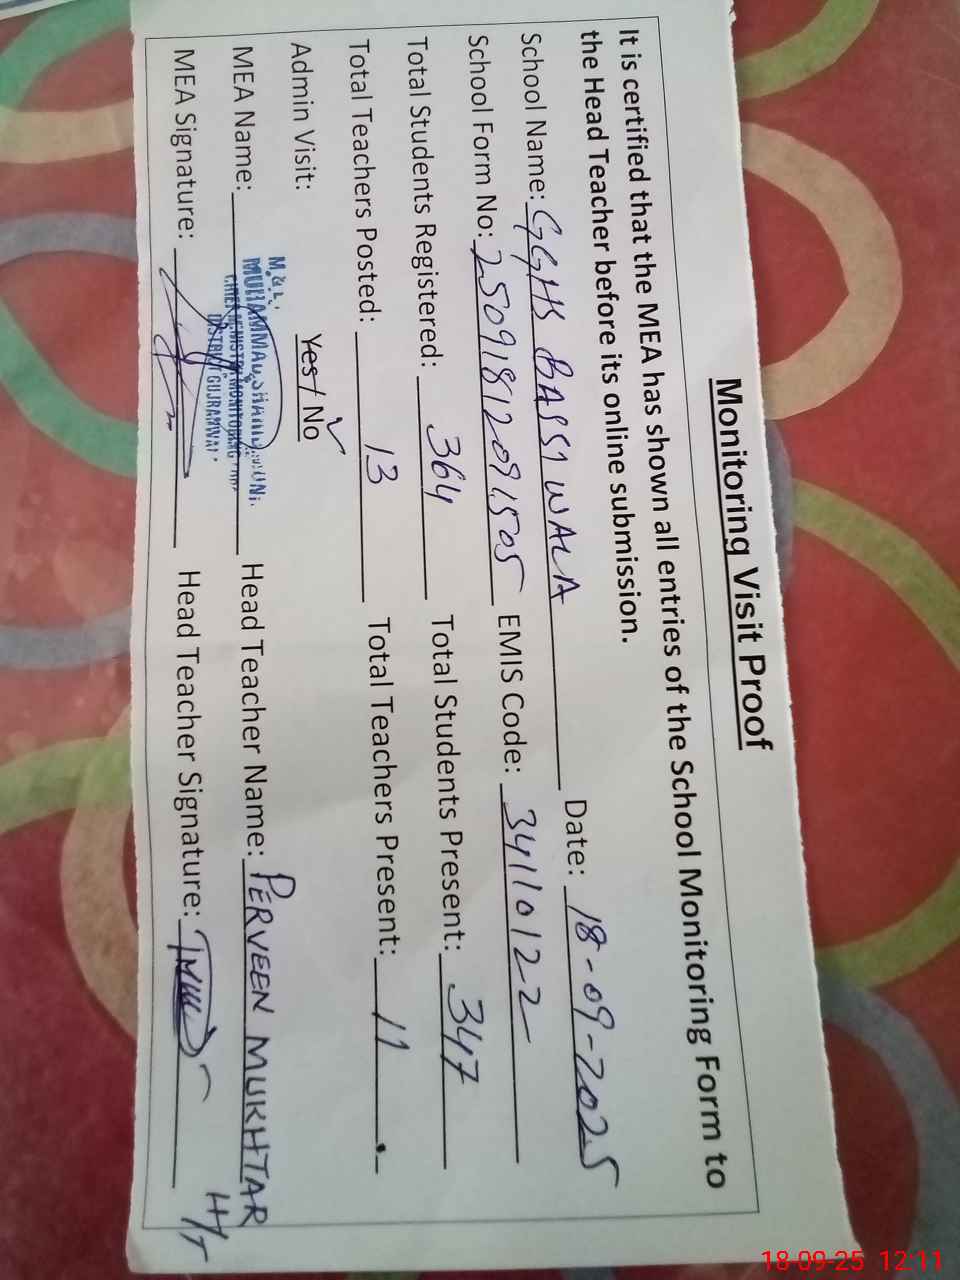 Monitoring Visit Proof
It is certified that the MEA has shown all entries of the School Monitoring Form to
the Head Teacher before its online submission.
School Name: GGHS BASSI WALA Date: 18-09-2025
School Form No: 25091812091505 EMIS Code: 34110122
Total Students Registered: 364 Total Students Present: 347
Total Teachers Posted: 13 Total Teachers Present: 11
Admin Visit: Yes / No ✓
M.E.A.
MEA Name: MUHAMMAD Head Teacher Name: PERVEEN MUKHTAR
CHIEF MINISTER MONITORING
DISTRICT GUJRANWALA
MEA Signature: Head Teacher Signature: H/T
18-09-25 12:11